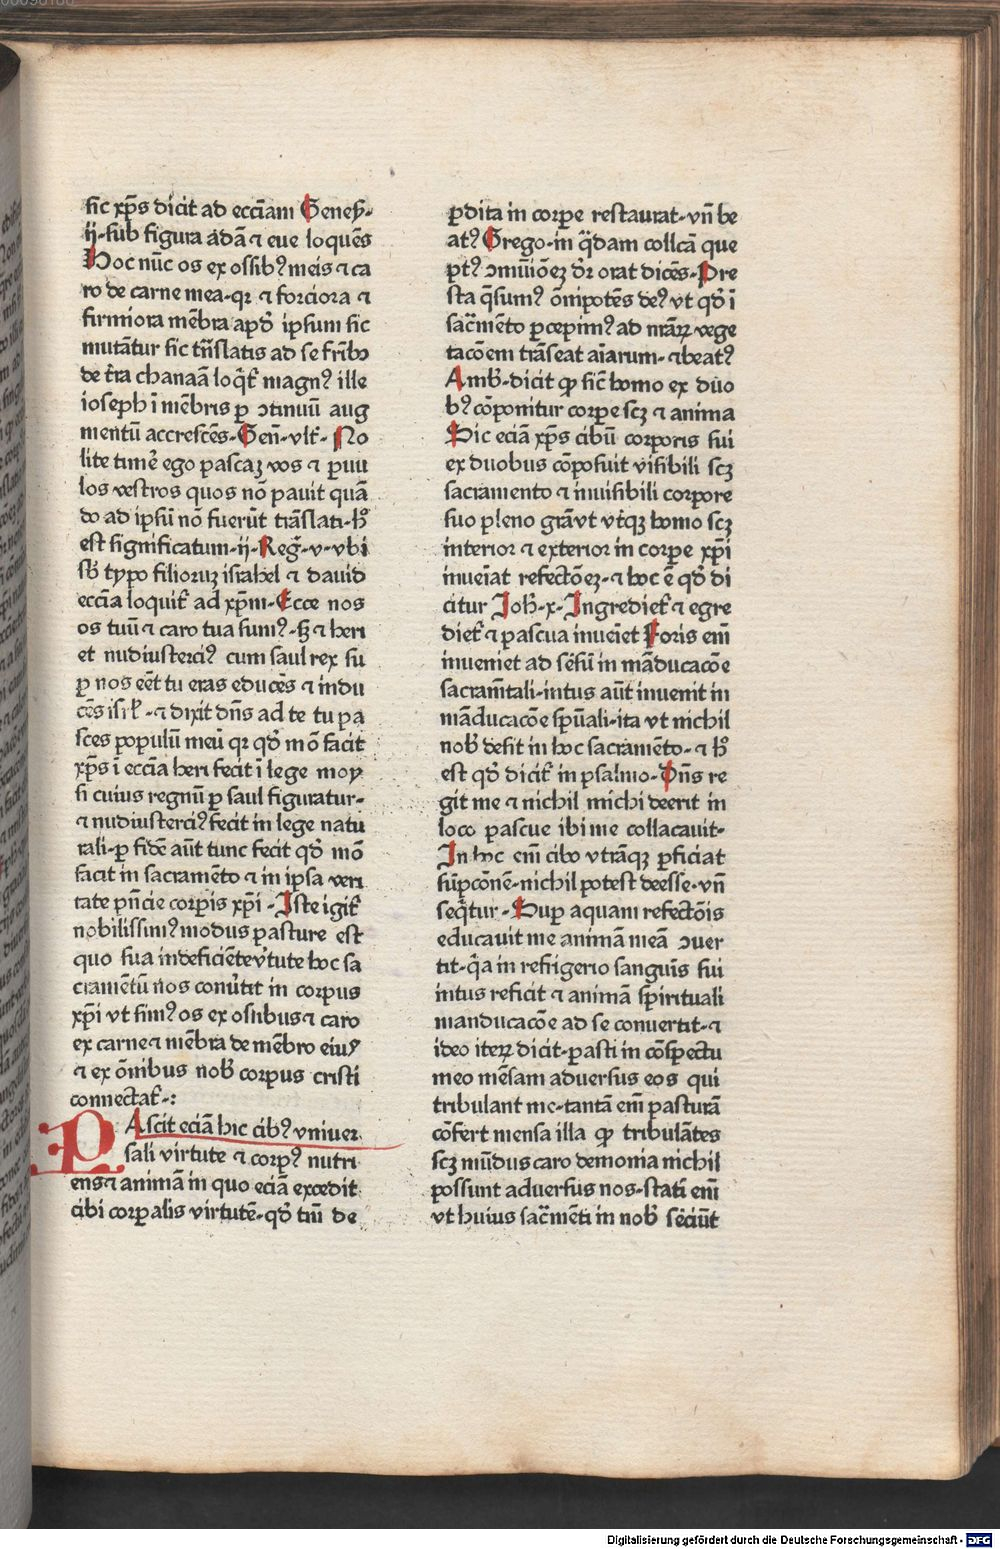 sic xp̄s dicit ad eccl̄iam Genes̄.
ij. sub figura adā ⁊ eue loquēs
Hoc nūc os ex ossibꝰ meis ⁊ ca
ro de carne mea. qꝛ ⁊ forciora ⁊
firmiora mēbra apd̄ ipsum sic
mutātur sic trāslatis ad se frībꝫ
de t̄ra chanaā loq̄t᷑ magnꝰ ille
ioseph ī mēbris ꝑ ↄtinuū aug
mentū accrescēs. Gen̄. vlt̄. No
lite timē ego pascaꝫ vos ⁊ ꝑuu
los vestros quos nō pauit quā
do ad ipsū nō fuerūt trāslati. h̄ᵒ
est significatum. ij. Reg̃. v. vbi
sb̄ typo filioruꝫ israhel ⁊ dauid
eccīa loquit᷑ ad xp̄m. Ecce nos
os tuū ⁊ caro tua sumꝰ. sꝫ ⁊ heri
et nudiusterciꝰ cum saul rex su
ꝑ nos eēt tu eras educēs ⁊ indu
cēs isr̄l. ⁊ dixit dn̄s ad te tu pa
sces populū meū qꝛ qd̄ mō facit
xp̄s ī eccīa heri fecit ī lege moy
si cuius regnū ꝑ saul figuratur.
⁊ nudiusterciꝰ fecit in lege natu
rali. ꝑ fidē aūt tunc fecit qd̄ mō
facit in sacramēto ⁊ in ipsa veri
tate pn̄cie corꝑis xp̄i. Iste igit᷑
nobilissimꝰ modus pasture est
quo sua indeficiēte v̓tute hoc sa
cramētū nos conūtit in corpus
xp̄i vt simꝰ os ex ossibus ⁊ caro
ex carne ⁊ mēbra de mēbro eiuꝰ
⁊ ex ōnibus nob̓ corpus cristi
connectat᷑.:
PAscit eciā hic cibꝰ vniuer
sali virtute ⁊ corpꝰ nutri
ens ⁊ animā in quo eciā excedit
cibi corꝑalis virtutē. qd̄ tm̄ de
ꝑdita in corꝑe restaurat. vn̄ be
atꝰ Grego. in q̈dam collcā que
ptꝰ ↄmūiōeꝫ d̓r orat dicēs. Pre
sta q̄sumꝰ ōnipotēs deꝰ vt qd̄ ī
sac̄mēto ꝑcepimꝰ ad nr̄āꝝ vege
tacōem trāseat aīarum. ⁊ beatꝰ
Amb̓. dicit ꝙ sic̄ homo ex duo
bꝰ cōponitur corꝑe scꝫ ⁊ anima
Sic eciā xp̄s cibū corꝑoris sui
ex duobus cōposuit visibili scꝫ
sacramento ⁊ inuisibili corpore
suo pleno grā vt vt̓qꝫ homo scꝫ
interior ⁊ exterior in corꝑe xp̄i
inueīat refectōeꝫ. ⁊ hoc ē qd̄ di
citur Ioh̄. x. Ingrediet᷑ ⁊ egre
diet᷑ ⁊ pascua inueīet Foris em̄
inueniet ad sēsū in māducacōe
sacram̄tali. intus aūt inuenit in
māducacōe sp̄uali. ita vt nichil
nob̓ desit in hoc sacramēto. ⁊ h̄ᵒ
est qd̄ dicit᷑ in psalmo. Dn̄s re
git me ⁊ nichil michi deerit in
loco pascue ibi me collacauit.
In hoc em̄ cibo vtrāqꝫ ꝑficiat
nichil potest deesse. vn̄
seq̄tur. Suꝑ aquam refectōis
educauit me animā meā ↄuer
tit. q̄a in refrigerio sanguīs sui
intus reficit ⁊ animā sp̄irituali
manducacōe ad se conuertit. ⁊
ideo iteꝝ dicit. ꝑasti in cōspectu
meo mēsam aduersus eos qui
tribulant me. tantā em̄ pasturā
cōfert mensa illa ꝙ tribulātes
scꝫ mūdus caro demonia nichil
possunt aduersus nos. stati em̄
vt huius sac̄mēti in nob̓ sēciūt
Digitalisierung gefördert durch die Deutsche Forschungsgemeinschaft - DFG